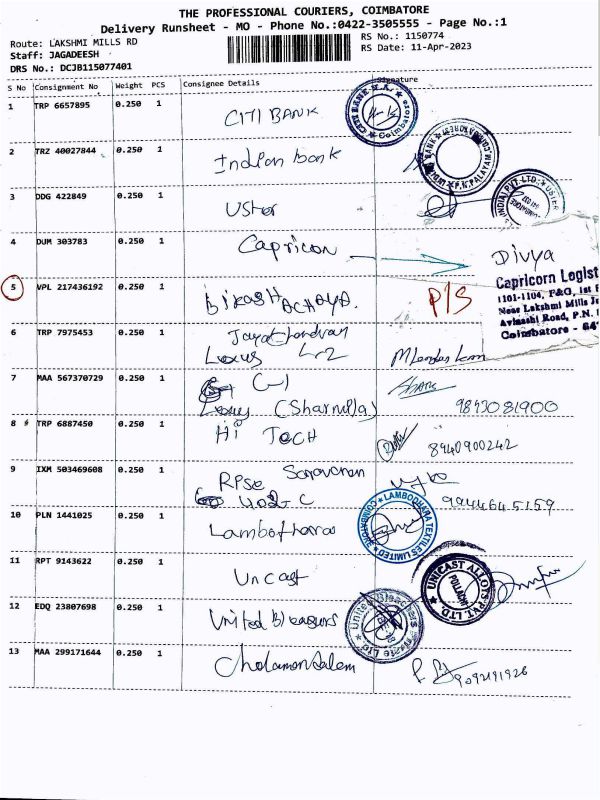 THE PROFESSIONAL COURIERS, COIMBATORE
Delivery Runsheet - MO - Phone No.:0422-3505555 - Page No.:1
Route: LAKSHMI MILLS RD
Staff: JAGADEESH
DRS No.: DCJB115077401
RS No.: 1150774
RS Date: 11-Apr-2023
S No Consignment No Weight PCS Consignee Details Signature
1 TRP 6657895 0.250 1 CITI BANK
CITI BANK N.A. Coimbatore
2 TRZ 40027844 0.250 1 Indian bank
BANK P.N.PALAYAM
3 DDG 422849 0.250 1 Uster
(INDIA) PVT. LTD. USTER
4 DUM 303783 0.250 1 Capricon Divya
Capricorn Logist
1101-1104, F&G, 1st F
Near Lakshmi Mills Ju
Avinashi Road, P.N.
Coimbatore - 64
5 VPL 217436192 0.250 1 P/S
6 TRP 7975453 0.250 1 Jayachandran
Lexus
7 MAA 567370729 0.250 1 G-1
Lexus (Sharmila) 9895081900
8 TRP 6887450 0.250 1 Hi TECH 8940900242
9 IXM 503469608 0.250 1 RPSE Saravanan
402-C 9944645159
10 PLN 1441025 0.250 1
LAMBODHARA TEXTILES LIMITED
11 RPT 9143622 0.250 1 Unicast
UNICAST ALLOYS PVT. LTD. POLLACHI
12 EDQ 23807698 0.250 1 United Bleachers
United Bleachers Private Ltd
13 MAA 299171644 0.250 1 Cholamandalam 9092191926